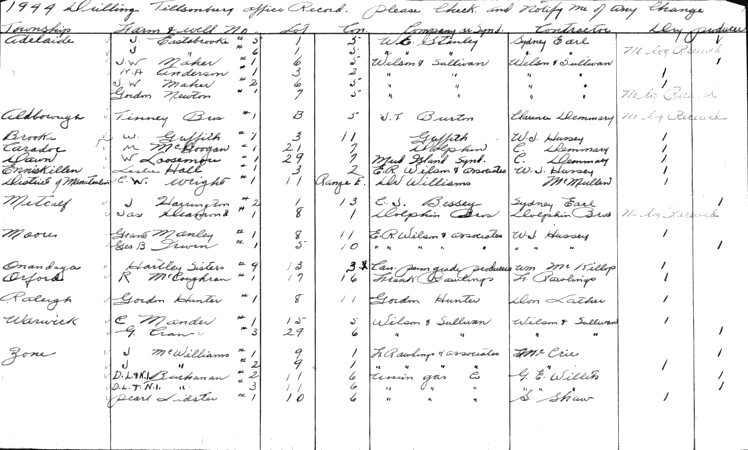 1944 Drilling Tillsonburg office Record. please Check and Notify me of any Change
Township Farm & well No. Lot Con. Company or Synd. Contractor Dry producer
Adelaide J Eastabrooke # 5 1 5 W.E. Stanley Sydney Earl
J " # 6 1 5 " " " " No log Received
J.W Maker # 1 6 5 Wilson & Sullivan Wilson & Sullivan 1
R.A Anderson # 1 3 2 " " " " 1
J.W Maker # 2 6 5 " " " " 1
Gordon Newton # 1 7 5 " " " " No log Received
Aldborough Tinney Bros # 1 B 5 J.T Burton Clarence Demmary No log Received
Brooke W. Griffith # 7 3 11 Griffith W.J. Hussey 1
Caradoc M McGoogan # 1 21 7 Dolphin C. Demmary 1
Dawn W Loosemore # 1 29 7 Mud Island Synd. C. Demmary 1
Enniskillen Leslie Hall # 1 3 2 E.R Wilson & associates W.J. Hussey 1
District of Manitoulin C.W. Wright # 1 11 Range E. Williams McMullen 1
Metcalf J Harrington # 2 1 13 C.J. Bessey Sydney Earl 1
Jas # 1 8 1 Dolphin Bros Dolphin Bros No log Received
Moore Grant Manley # 1 8 11 E.R Wilson & associates W.J Hussey 1
Geo B Irwin # 1 5 10 " " " " " " 1
Onandaga Hartley Sisters # 9 13 3 Can penn grade producers Wm McKillop 1
Orford R McCoughran # 1 17 16 Frank Rawlings F. Rawlings 1
Raleigh Gordon Hunter # 1 8 11 Gordon Hunter Don Lather 1
Warwick C Mander # 1 15 5 Wilson & Sullivan Wilson & Sullivan 1
G. Crane # 3 29 6 " " " " 1
Zone J McWilliams # 1 9 1 F. Rawlings & associates McCrie 1
J " # 2 9 1 " " " " 1
D.L. & N.I Buchanan # 2 11 6 Union gas Co G.E. Willits 1
D.L. & N.I. " # 3 11 6 " " " " " 1
Pearl Lidster # 1 10 6 " " " S Shaw 1